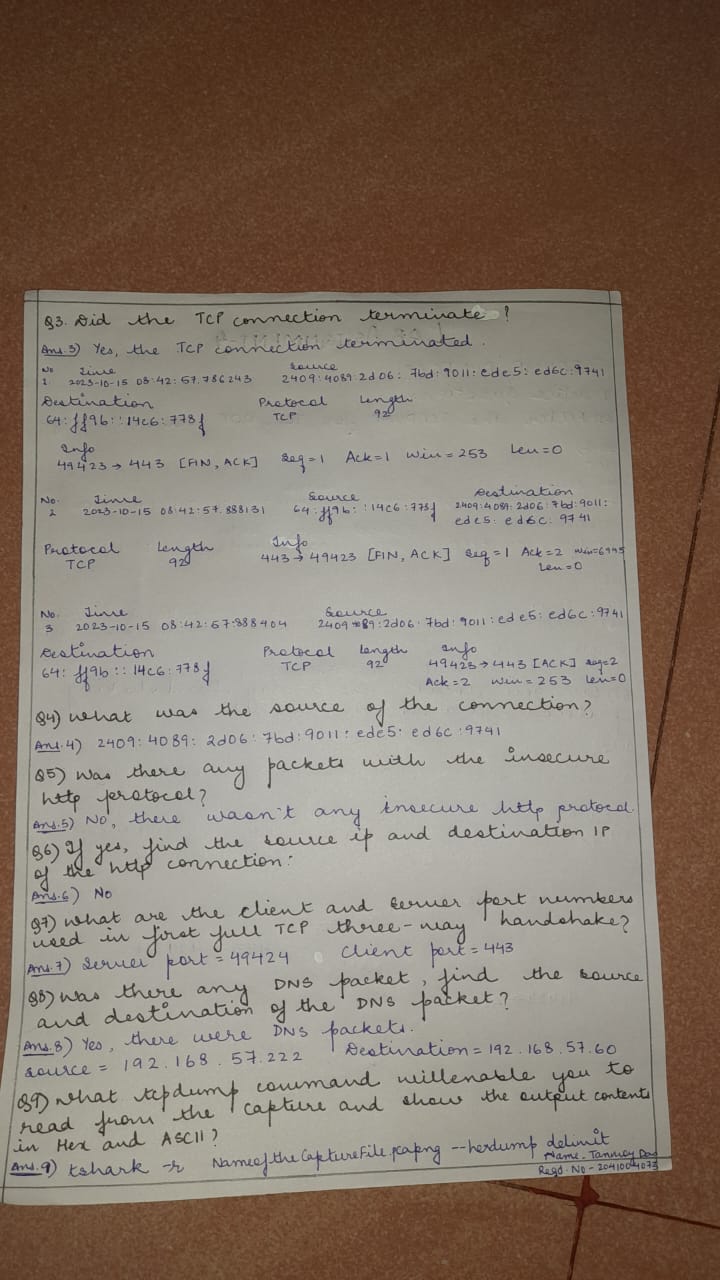 Q3. Did the TCP connection terminate?
Ans.3) Yes, the TCP connection terminated.
No Time Source
1 2023-10-15 08:42:57.786243 2409:4089:2d06:7bd:9011:ede5:ed6c:9741
Destination Protocol Length
64:ff9b::14c6:778f TCP 92
Info
49423→443 [FIN, ACK] Seq=1 Ack=1 Win=253 Len=0
No. Time Source Destination
2 2023-10-15 08:42:57.888131 64:ff9b::14c6:778f 2409:4089:2d06:7bd:9011:
ede5:ed6c:9741
Protocol Length Info
TCP 92 443→49423 [FIN, ACK] Seq=1 Ack=2
Len=0
No. Time Source
3 2023-10-15 08:42:57:888404 :2d06:7bd:9011:ede5:ed6c:9741
Destination Protocol Length Info
64:ff9b::14c6:778f TCP 92 49423→443 [ACK] Seq=2
Ack=2 Win=253 Len=0
Q4) What was the source of the connection?
Ans.4) 2409:4089:2d06:7bd:9011:ede5:ed6c:9741
Q5) Was there any packets with the insecure
http protocol?
Ans.5) No, there wasn't any insecure http protocol.
Q6) If yes, find the source ip and destination IP
of the http connection:
Ans.6) No
Q7) What are the client and server port numbers
used in first full TCP three-way handshake?
Ans.7) Server port = 49424 Client port = 443
Q8) Was there any DNS packet, find the source
and destination of the DNS packet?
Ans.8) Yes, there were DNS packets.
source = 192.168.57.222 Destination = 192.168.57.60
Q9) What tcpdump command willenable you to
read from the capture and show the output contents
in Hex and ASCII?
Ans.9) tshark -r NameoftheCaptureFile.pcapng --hexdump delimit
Name- Tanmoy Das
Regd. No-